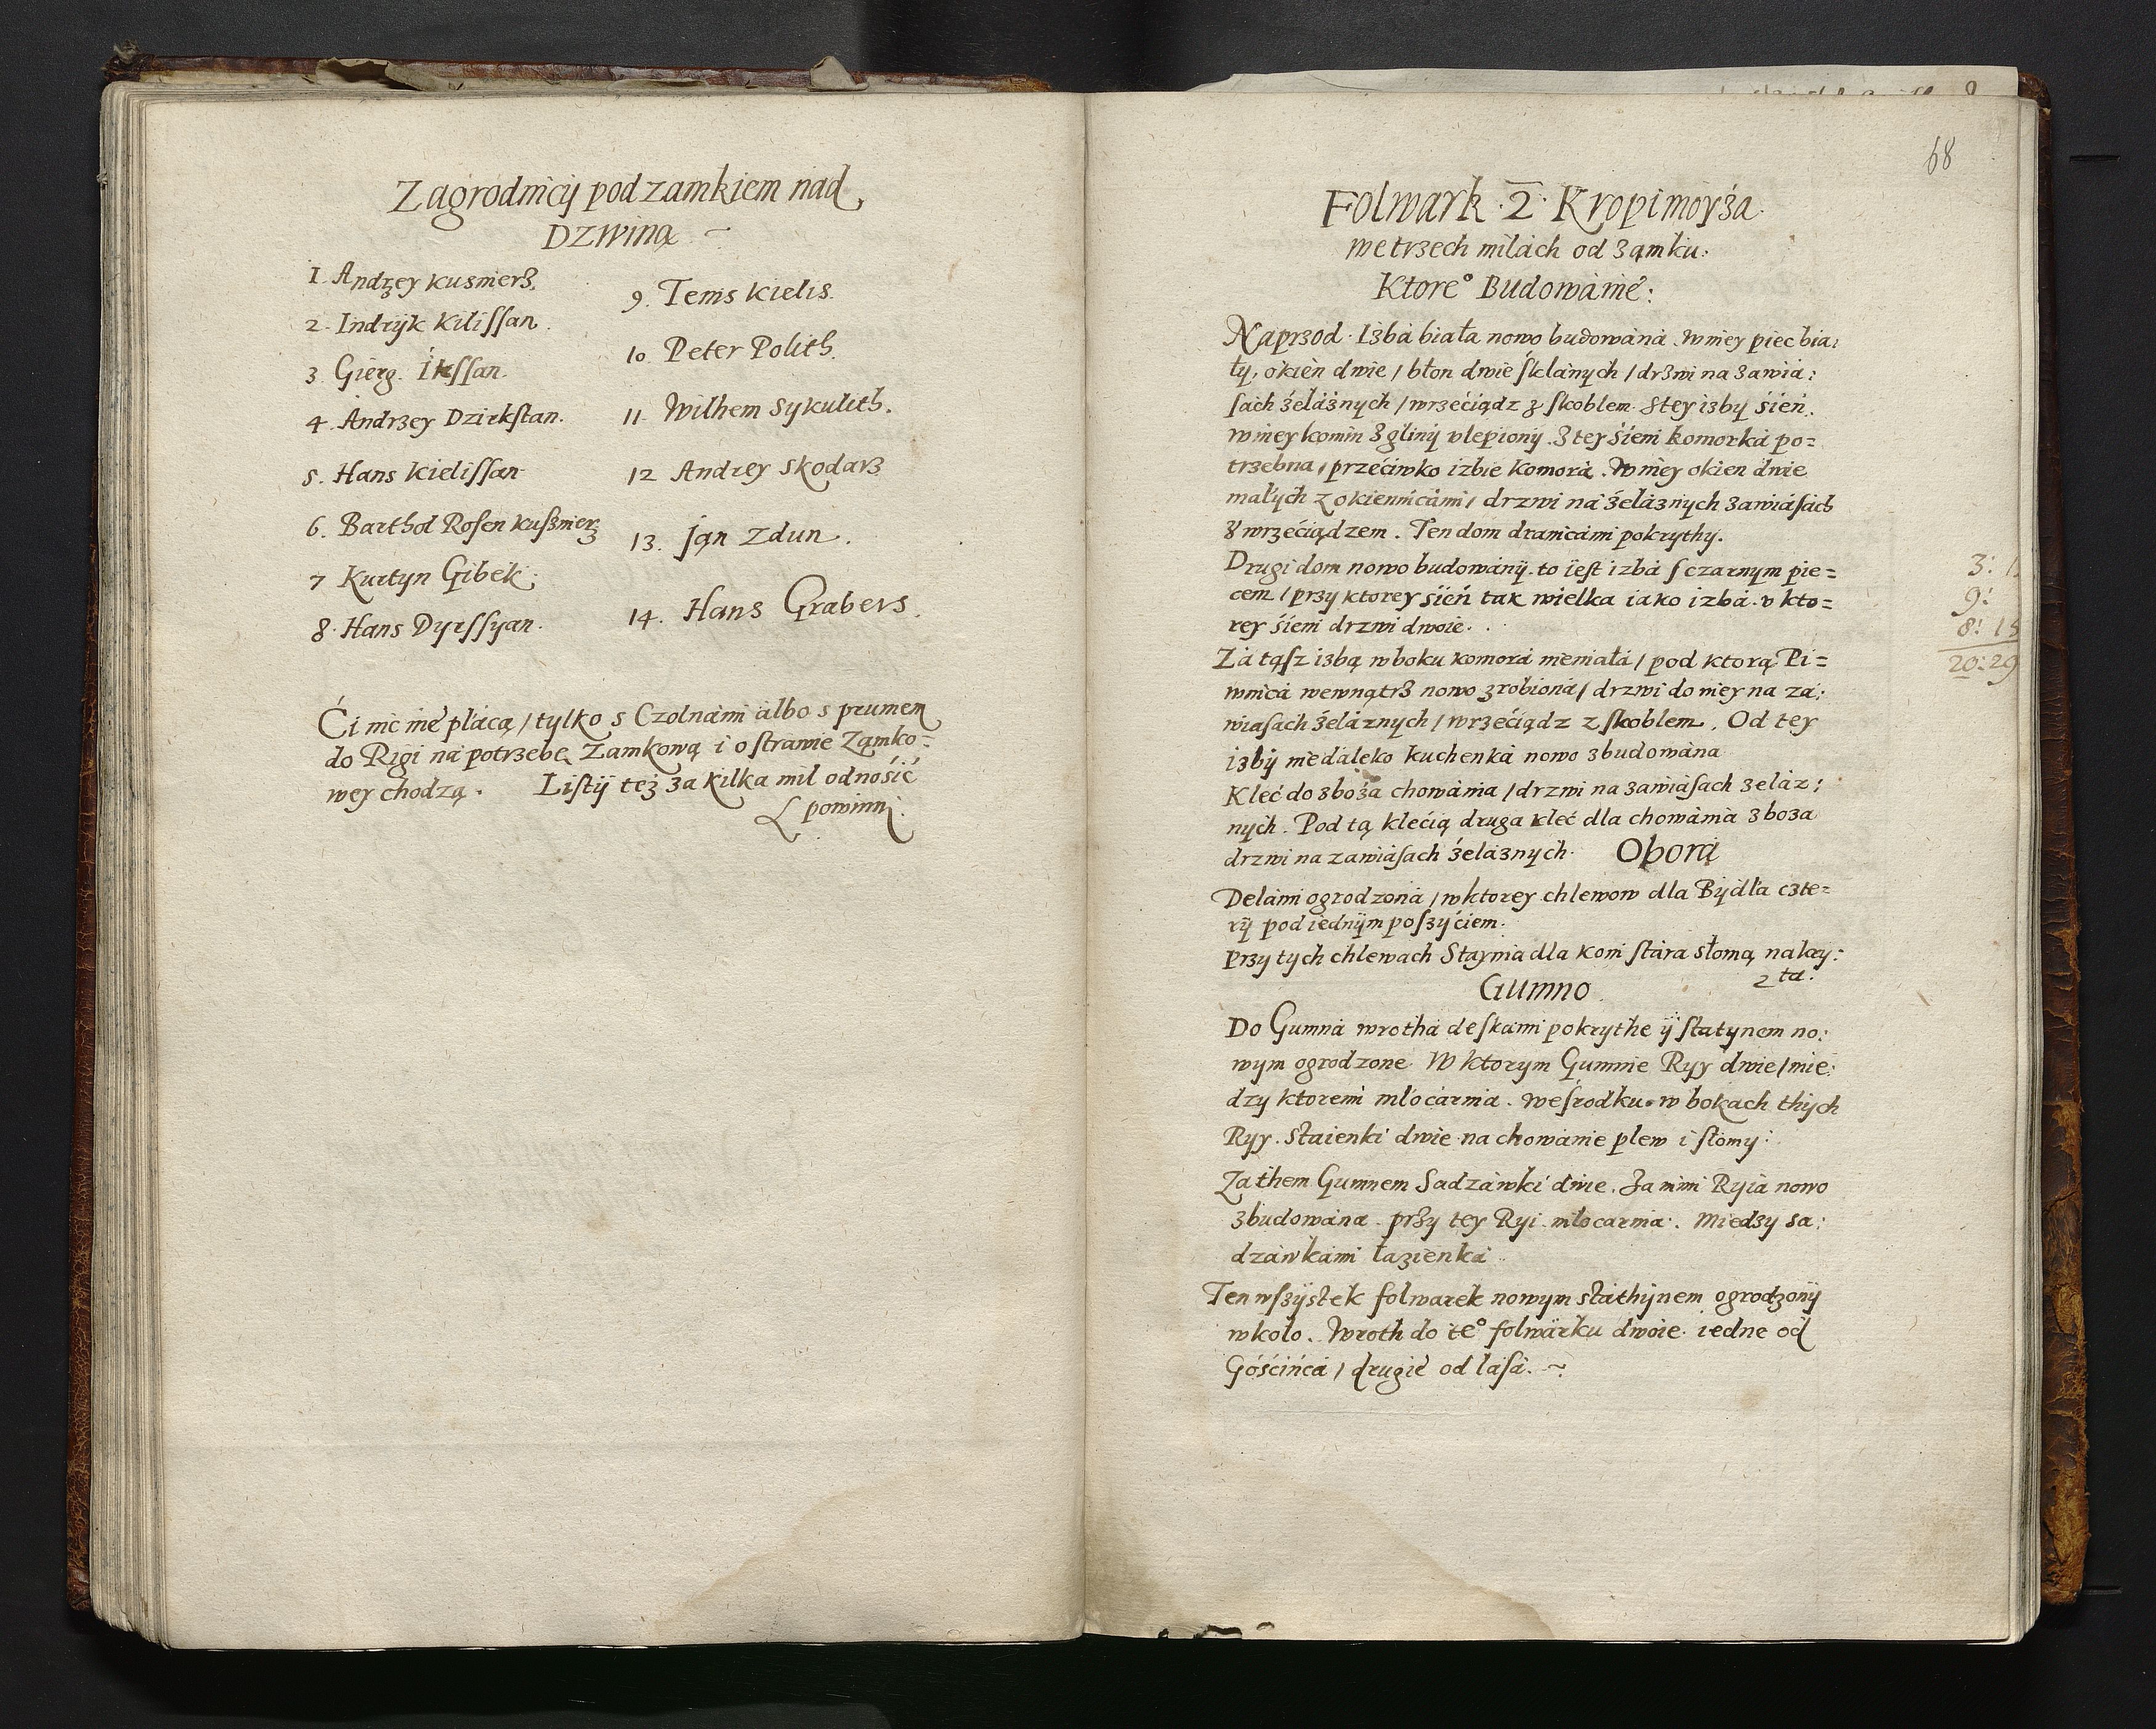 Zagrodnicÿ pod zamkiem nad
Dzwiną
1. Andrzey kusnierz
2. Indrÿk Kilissan.
3 Gierg. Ikssan.
4. Andrzey Dzirkstan.
5. Hans Kielissan
6. Barthol Rosen kuszmierz
7 Kurtyn Gibek.
8. Hans Dyrssyan.
9. Tems kielis.
10. Peter Polith.
11. Wilhem Sykulith.
12 Andrey Skodarz
13. Jan Zdun.
14. Hans Grabers.
Ci nic nie płacą / tylko s Czolnami albo s prumem
do Rigi na potrzebę Zamkową i o strawie Zamko=
wey chodzą. Listÿ też za kilka mil odnosić
powinni.
68
Folwark .2. Kropimoyza
we trzech milach od zamku.
Ktore° Budowanie:
Naprzod. Izba biała nowo budowana. w niey piec bia:
łÿ, okien dwie / błon dwie śklanÿch / drzwi na zawia:
sach żelaznych / wrzeciądz z skoblem. Z tey izby sień.
w niey komin z glinÿ vlepionÿ. Z tey sieni komorka po=
trzebna / przeciwko izbie komora. W niey okien dwie
małÿch z okiennicami / drzwi na żelaznych zawiasach
z wrzeciądzem. Ten dom dranicami pokrythy.
Drugi dom nowo budowanÿ. to iest izba s czarnym pie=
cem / przy ktorey sień tak wielka iako izba. v kto=
rey sieni drzwi dwoie.
Za tąsz izbą w boku komora niemała / pod ktorą Pi=
wnica wewnątrz nowo zrobiona / drzwi do niey na za:
wiasach żelaznych / wrzeciądz z skoblem. Od tey
izbÿ niedaleko kuchenka nowo zbudowana
Kleć do zboża chowania / drzwi na zawiasach żelaz:
nÿch. Pod tą klecią druga kleć dla chowania zboza
drzwi na zawiasach żelaznych. Obora
Delami ogrodzona / w ktorey chlewow dla Bÿdła czte=
rÿ pod iednÿm poszÿciem.
Przy tych chlewach Staynia dla koni stara słomą nakry:
ta.
Gumno
Do Gumna wrotha deskami pokrythe ÿ statynem no:
wym ogrodzone. W ktorym Gumnie Ryy dwie / mie:
dzy ktoremi młocarnia. we srodku w bokach thÿch
Ryy. Staienki dwie na chowanie plew i słomy:
Za them Gumnem Sadzawki dwie. Za nimi Ryia nowo
zbudowana. przy tey Ryi młocarnia. Miedzy sa:
dzawkami łazienka
Ten wszÿstek folwarek nowym stathÿnem ogrodzonÿ
wkoło. Wroth do te° folwarku dwoie. iedne od
Gościńca / drugie od lasa.
3: 1
9:
8: 18
20: 29